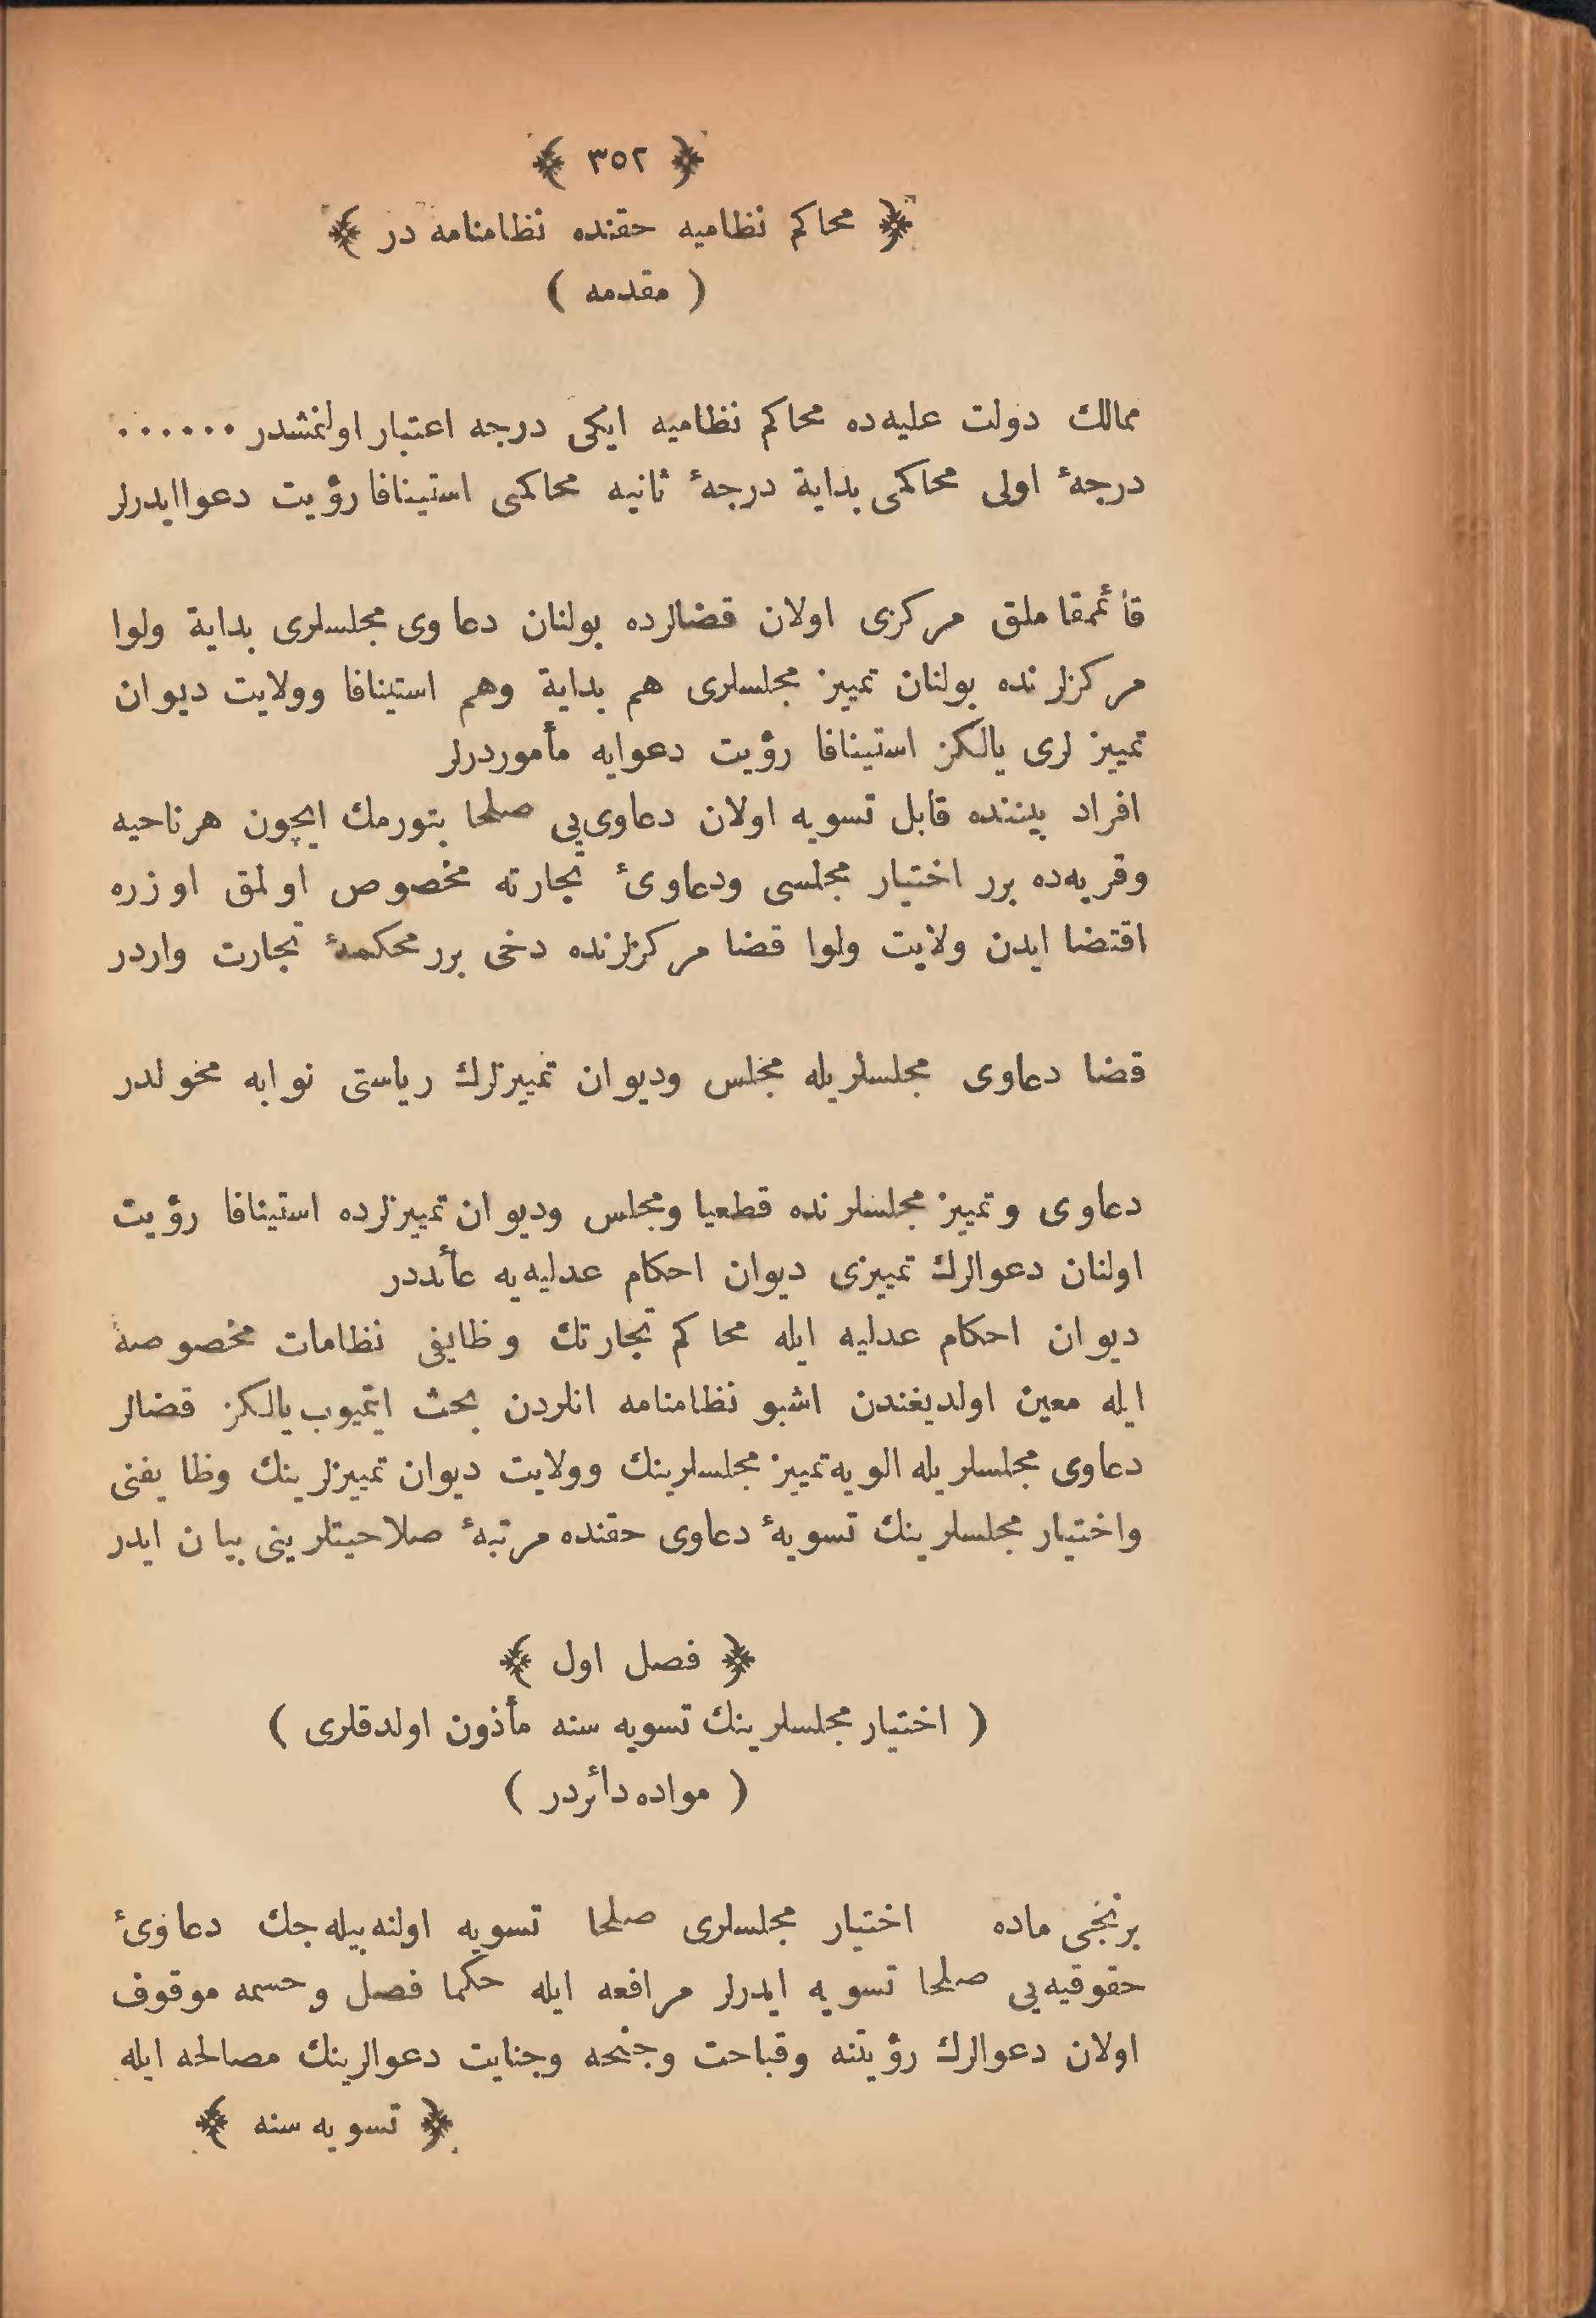 ﴿ ٣٥٢ ﴾
﴿ محاكم نظاميه حقنده نظامنامه در ﴾
( مقدمه )
ممالك دولت عليه‌ده محاكم نظاميه ايكى درجه اعتبار اولنمشدر ......
درجهٔ اولى محاكمى بداية درجهٔ ثانيه محاكمى استينافا رؤيت دعوا ايدرلر
قائمقاملق مركزى اولان قضالرده بولنان دعاوى مجلسلرى بداية ولوا
مركزلرنده بولنان تمييز مجلسلرى هم بداية وهم استينافا وولايت ديوان
تمييزلرى يالكز استينافا رؤيت دعوايه مأموردرلر
افراد بيننده قابل تسويه اولان دعاوى‌يى صلحا بتورمك ايچون هر ناحيه
وقريه‌ده برر اختيار مجلسى ودعاوئ تجارته مخصوص اولمق اوزره
اقتضا ايدن ولايت ولوا قضا مركزلرنده دخى برر محكمهٔ تجارت واردر
قضا دعاوى مجلسلريله مجلس وديوان تمييزلرك رياستى نوابه محولدر
دعاوى وتمييز مجلسلرنده قطعيا ومجلس وديوان تمييزلرده استينافا رؤيت
اولنان دعوالرك تمييزى ديوان احكام عدليه‌يه عائددر
ديوان احكام عدليه ايله محاكم تجارتك وظايفى نظامات مخصوصه
ايله معين اولديغندن اشبو نظامنامه انلردن بحث ايتميوب يالكز قضالر
دعاوى مجلسلريله الويه تمييز مجلسلرينك وولايت ديوان تمييزلرينك وظايفنى
واختيار مجلسلرينك تسويهٔ دعاوى حقنده مرتبهٔ صلاحيتلرينى بيان ايدر
﴿ فصل اول ﴾
( اختيار مجلسلرينك تسويه سنه مأذون اولدقلرى )
( مواده دائردر )
برنجى ماده اختيار مجلسلرى صلحا تسويه اولنه‌بيله‌جك دعاوئ
حقوقيه‌يى صلحا تسويه ايدرلر مرافعه ايله حكما فصل وحسمه موقوف
اولان دعوالرك رؤيتنه وقباحت وجنحه وجنايت دعوالرينك مصالحه ايله
﴿ تسويه سنه ﴾